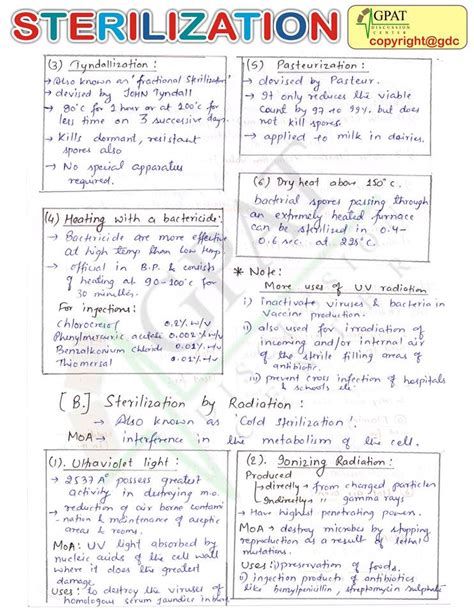 STERILIZATION
GPAT
DISCUSSION
CENTER
copyright@gdc
(3) Tyndallization :
→ Also known as 'fractional sterilization'
→ devised by JOHN Tyndall
→ 80°C for 1 hour or at 100°C for
less time on 3 successive days
→ Kills dormant, resistant
spores also
→ No special apparatus
required.
(4) Heating with a bactericide:
→ Bactericide are more effective
at high temp than low temp.
→ official in B.P. & consists
of heating at 90-100°C for
30 minutes.
For injections:
Chlorocresol 0.2% w/v
Phenylmercuric acetate 0.002% w/v
Benzalkonium chloride 0.01% w/v
Thiomersal 0.01% w/v
(5) Pasteurization :
→ devised by Pasteur.
→ It only reduces the viable
count by 97 to 99%. but does
not kill spores.
→ applied to milk in dairies.
(6) Dry heat above 150°C.
bacterial spores passing through
an extremely heated furnace
can be sterilized in 0.4-
0.6 sec. at 225°C.
* Note:
More uses of UV radiation
i) Inactivate viruses & bacteria in
Vaccine production.
ii) also used for irradiation of
incoming and/or internal air
of the sterile filling areas of
antibiotic.
iii) prevent cross infection of hospitals
& schools etc.
[B.] Sterilization by Radiation :
→ Also known as 'Cold sterilization'.
MoA → interference in the metabolism of the cell.
(1). Ultraviolet light :
→ 2537 A° possess greatest
activity in destroying m.o.
→ reduction of air borne contami
-nation & maintenance of aseptic
areas & rooms.
MoA: UV light absorbed by
nucleic acids of the cell wall
where it does the greatest
damage.
Uses: to destroy the viruses of
homologous serum jaundice in
(2). Ionizing Radiation :
Produced
→ directly → from charged particles
→ Indirectly → gamma rays
→ Have highest penetrating power.
MoA → destroy microbes by stopping
reproduction as a result of lethal
mutations.
Uses: i) preservation of foods.
ii) injection production of antibiotics
like benzylpenicillin, streptomycin sulphate